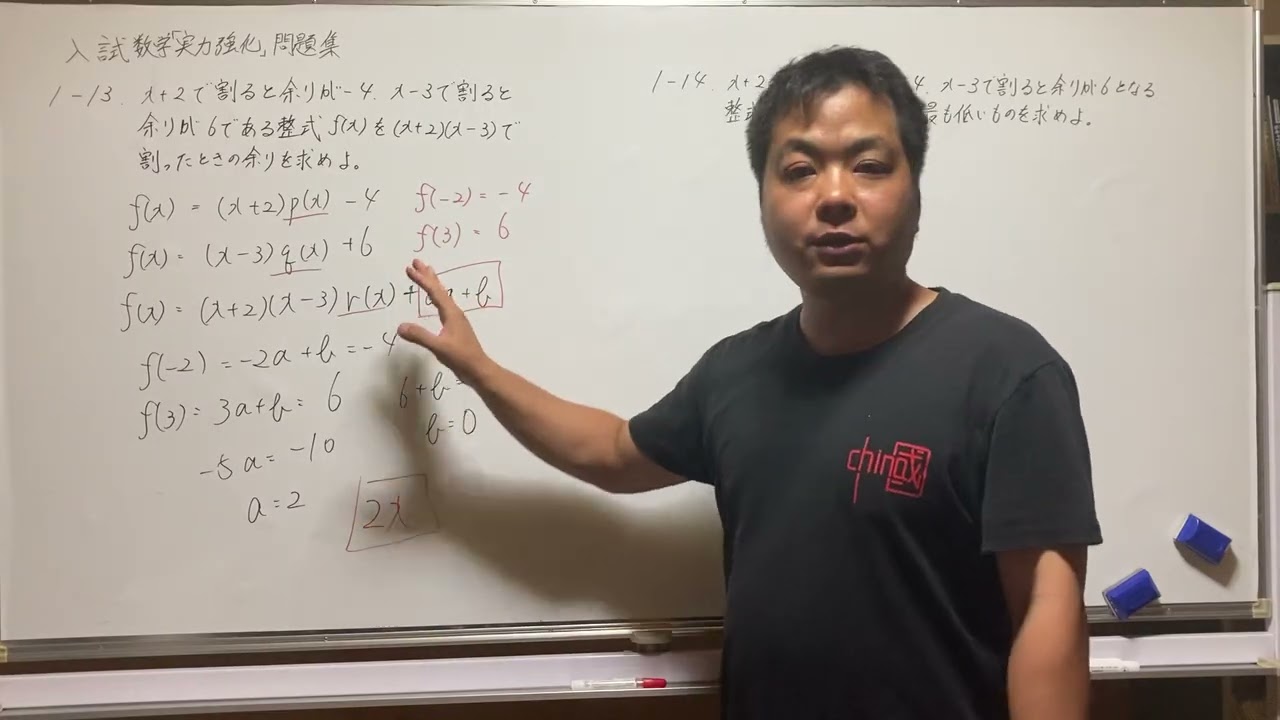 入試数学「実力強化」問題集
1-13. x+2で割ると余りが-4. x-3で割ると
余りが6である整式f(x)を(x+2)(x-3)で
割ったときの余りを求めよ。
f(x) = (x+2)p(x) -4
f(-2) = -4
f(x) = (x-3)q(x) +6
f(3) = 6
f(x) = (x+2)(x-3)r(x) +
+b
f(-2) = -2a+b = -4
f(3) = 3a+b = 6
6+b=
b=0
-5a = -10
a=2
2x
1-14. x+2
4. x-3で割ると余りが6となる
整式
最も低いものを求めよ。
chin國